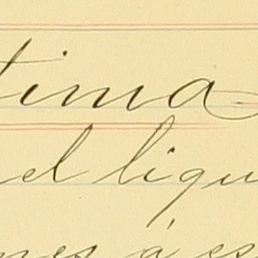 tima
el liqu
nes á es